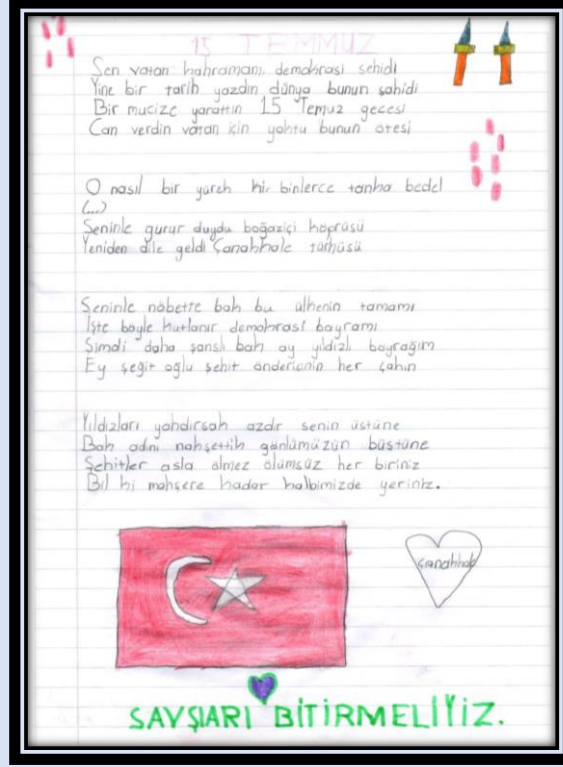 15 TEMMUZ
Sen vatan kahramanı demokrasi şehidi
Yine bir tarih yazdın dünya bunun şahidi
Bir mucize yarattın 15 Temuz gecesi
Can verdin vatan için yoktu bunun ötesi
O nasıl bir yürek ki, binlerce tanka bedel
(...)
Seninle gurur duydu boğaziçi köprüsü
Yeniden dile geldi Çanakkale türküsü
Seninle nöbette bak bu ülkenin tamamı
İşte böyle kutlanır demokrasi bayramı
Şimdi daha şanslı bak ay yıldızlı bayrağım
Ey şegit oğlu şehit önderisnin her çakın
Yıldızları yakdırsak azdır senin üstüne
Bak adını nakşettik gönlümüzün büstüne
Şehitler asla ölmez ölümsüz her biriniz
Bil ki mahşere kadar kalbimizde yeriniz.
Çanakkale
SAVŞIARI BİTİRMELİYİZ.